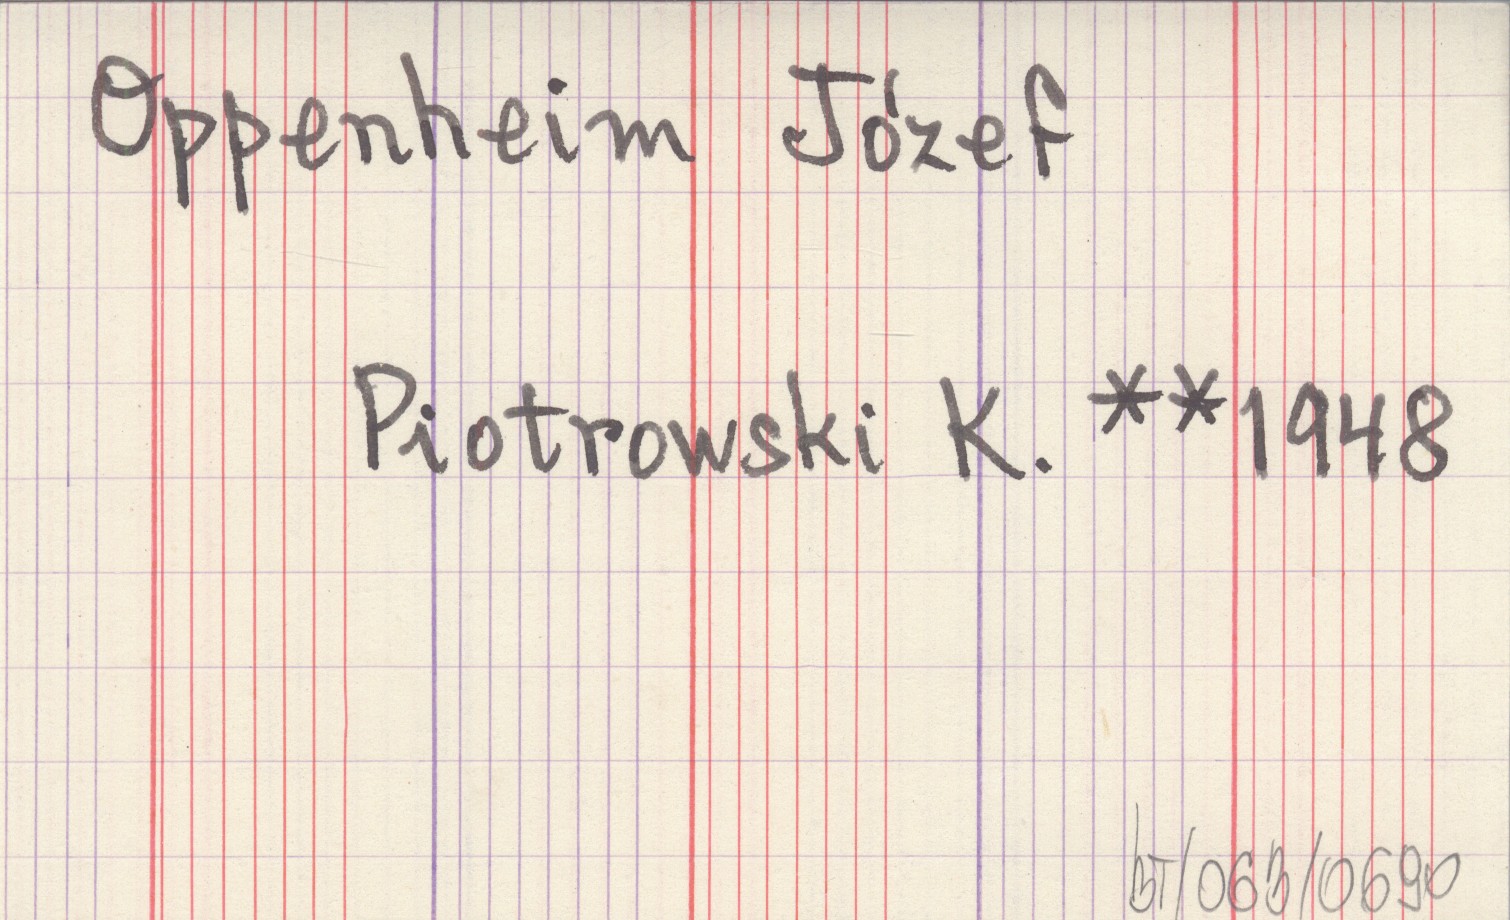 Oppenheim Józef
Piotrowski K. **1948
BT/063/0690